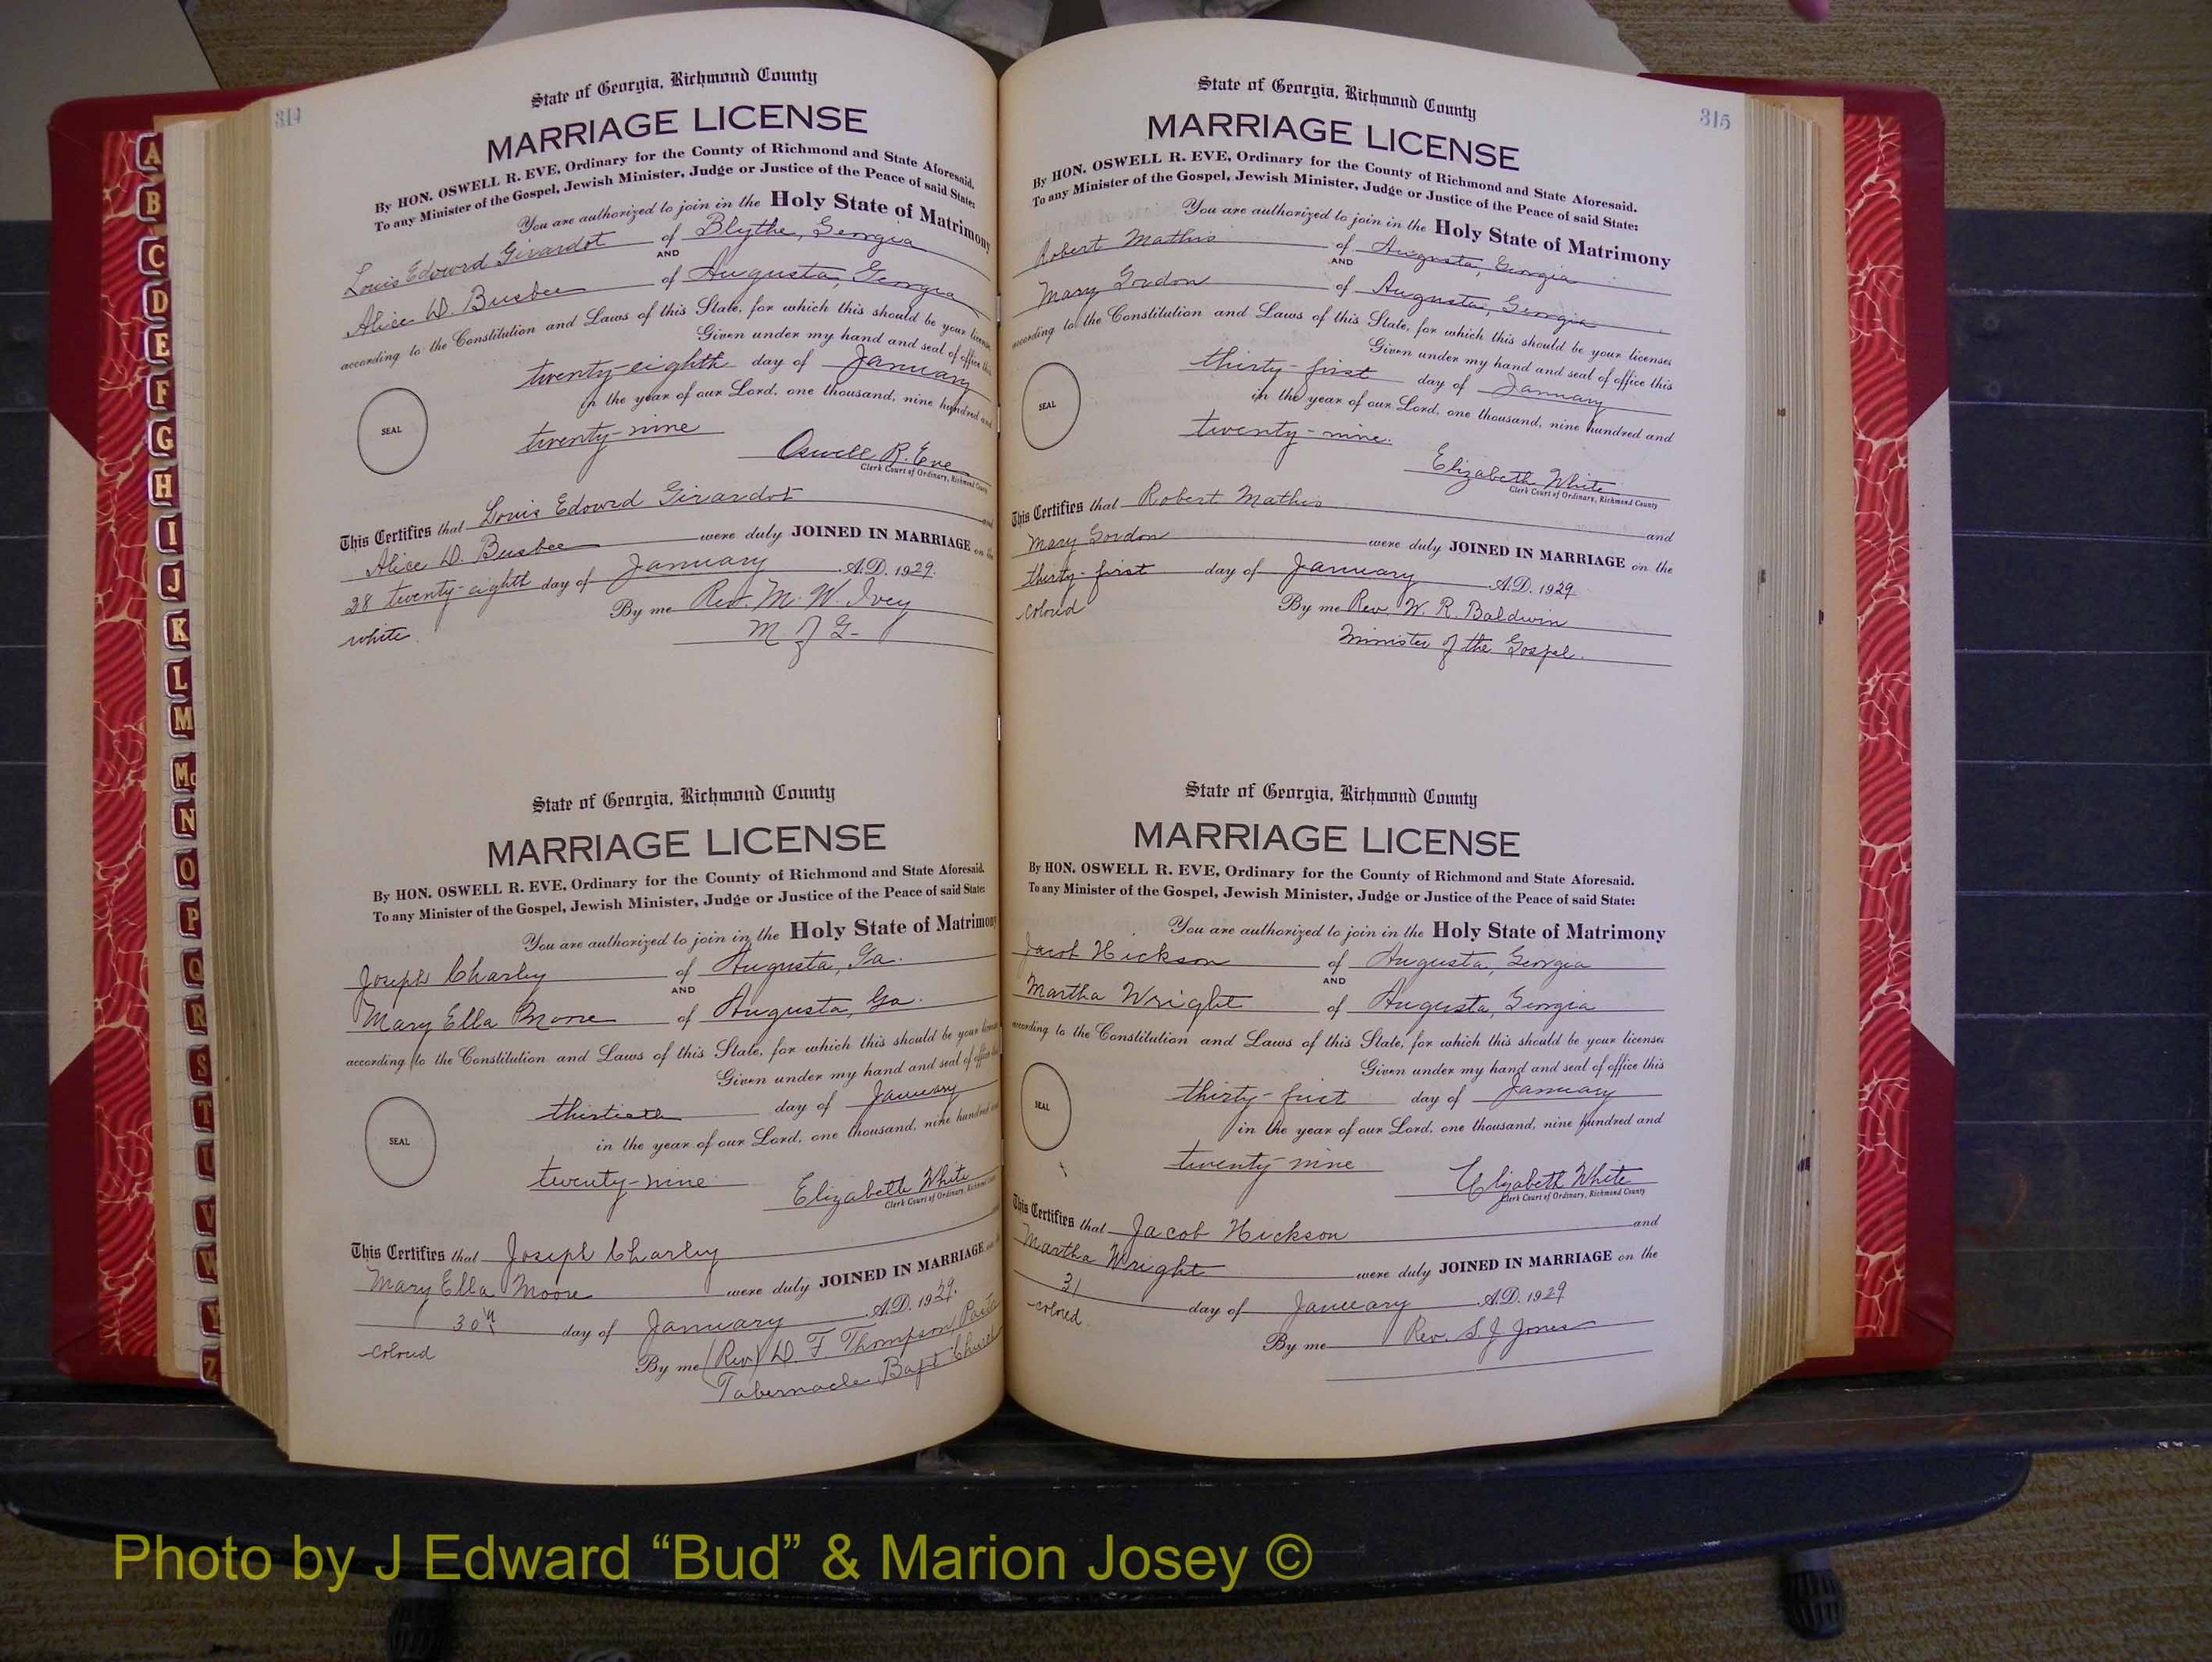 A
B
C
D
E
F
G
H
I
J
K
L
M
Mc
N
O
P
Q
R
S
T
U
V
W
Y
Z
314
State of Georgia, Richmond County
MARRIAGE LICENSE
By HON. OSWELL R. EVE, Ordinary for the County of Richmond and State Aforesaid.
To any Minister of the Gospel, Jewish Minister, Judge or Justice of the Peace of said State:
You are authorized to join in the Holy State of Matrimony
Louis Edward Girardot of Blythe, Georgia
AND
Alice D. Busbee of Augusta, Georgia
according to the Constitution and Laws of this State, for which this should be your license
Given under my hand and seal of office this
twenty-eighth day of January
in the year of our Lord, one thousand, nine hundred and
SEAL
twenty-nine
Oswell R. Eve
Clerk Court of Ordinary, Richmond County
This Certifies that Louis Edward Girardot and
Alice D. Busbee were duly JOINED IN MARRIAGE on the
28 twenty-eighth day of January A.D. 1929.
By me Rev. M. W. Ivey
white
M of G-
State of Georgia, Richmond County
MARRIAGE LICENSE
By HON. OSWELL R. EVE, Ordinary for the County of Richmond and State Aforesaid.
To any Minister of the Gospel, Jewish Minister, Judge or Justice of the Peace of said State:
You are authorized to join in the Holy State of Matrimony
Joseph Charley of Augusta, Ga.
AND
Mary Ella Moore of Augusta, Ga.
according to the Constitution and Laws of this State, for which this should be your license
Given under my hand and seal of office this
thirtieth day of January
in the year of our Lord, one thousand, nine hundred and
SEAL
twenty-nine
Elizabeth White
Clerk Court of Ordinary, Richmond County
This Certifies that Joseph Charley
Mary Ella Moore were duly JOINED IN MARRIAGE
30th day of January A.D. 1929.
colored
By me (Rev) D. F. Thompson, Pastor
Tabernacle Bapt Church
315
State of Georgia, Richmond County
MARRIAGE LICENSE
By HON. OSWELL R. EVE, Ordinary for the County of Richmond and State Aforesaid.
To any Minister of the Gospel, Jewish Minister, Judge or Justice of the Peace of said State:
You are authorized to join in the Holy State of Matrimony
Robert Mathis of Augusta, Georgia
AND
Mary Gordon of Augusta, Georgia
according to the Constitution and Laws of this State, for which this should be your licenses
Given under my hand and seal of office this
thirty-first day of January
in the year of our Lord, one thousand, nine hundred and
SEAL
twenty-nine.
Elizabeth White
Clerk Court of Ordinary, Richmond County
This Certifies that Robert Mathis and
Mary Gordon were duly JOINED IN MARRIAGE on the
thirty-first day of January A.D. 1929.
colored
By me Rev. W. R. Baldwin
Minister of the Gospel.
State of Georgia, Richmond County
MARRIAGE LICENSE
By HON. OSWELL R. EVE, Ordinary for the County of Richmond and State Aforesaid.
To any Minister of the Gospel, Jewish Minister, Judge or Justice of the Peace of said State:
You are authorized to join in the Holy State of Matrimony
Jacob Hickson of Augusta, Georgia
AND
Martha Wright of Augusta, Georgia
according to the Constitution and Laws of this State, for which this should be your licenses
Given under my hand and seal of office this
thirty-first day of January
in the year of our Lord, one thousand, nine hundred and
SEAL
twenty-nine
Elizabeth White
Clerk Court of Ordinary, Richmond County
This Certifies that Jacob Hickson and
Martha Wright were duly JOINED IN MARRIAGE on the
31 day of January A.D. 1929
colored
By me Rev. S. J. Jones
Photo by J Edward “Bud” & Marion Josey ©